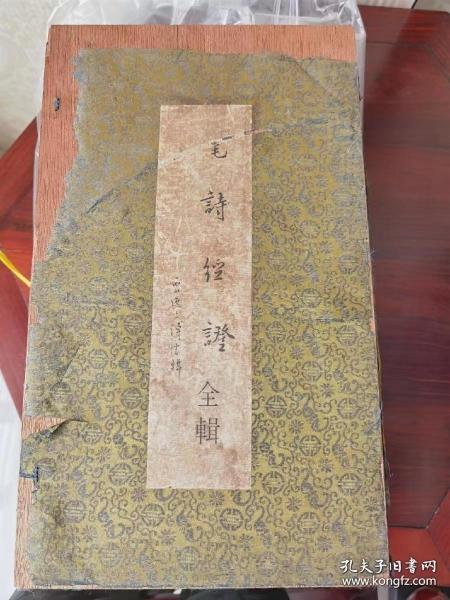 毛詩經證全輯
孔夫子旧书网
www.kongfz.com